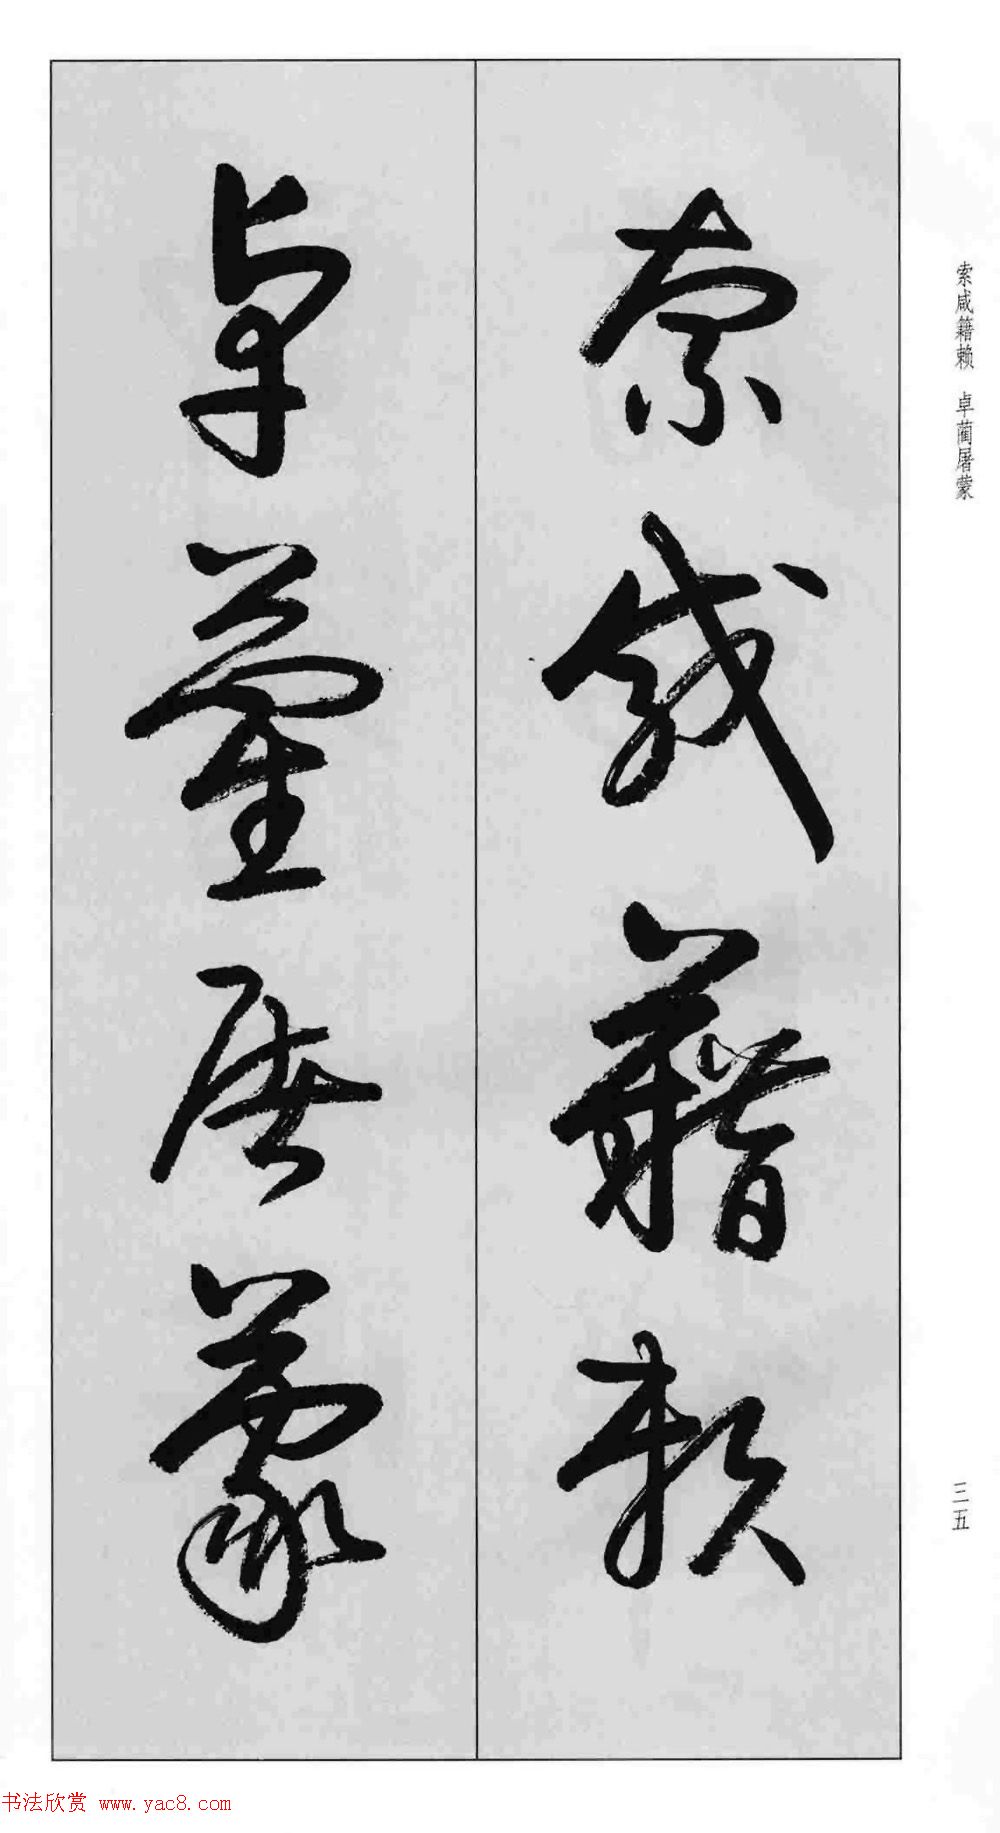 索咸籍赖 卓蔺屠蒙
索咸籍赖
卓蔺屠蒙
三五
书法欣赏 www.yac8.com